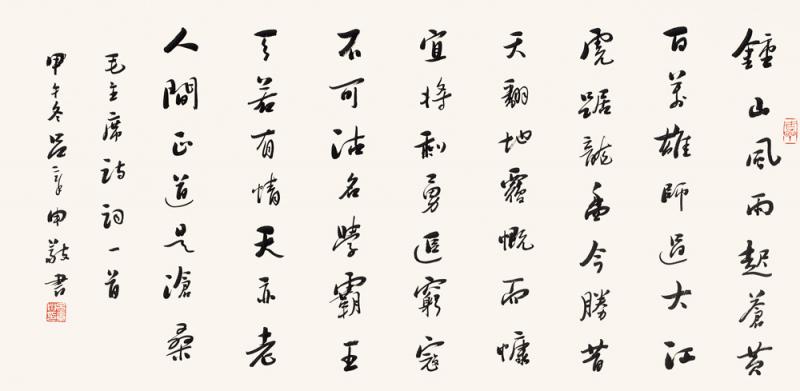 鍾山風雨起蒼黃
百萬雄師過大江
虎踞龍盤今勝昔
天翻地覆慨而慷
宜將剩勇追窮寇
不可沽名學霸王
天若有情天亦老
人間正道是滄桑
毛主席詩詞一首
甲午冬呂章申敬書